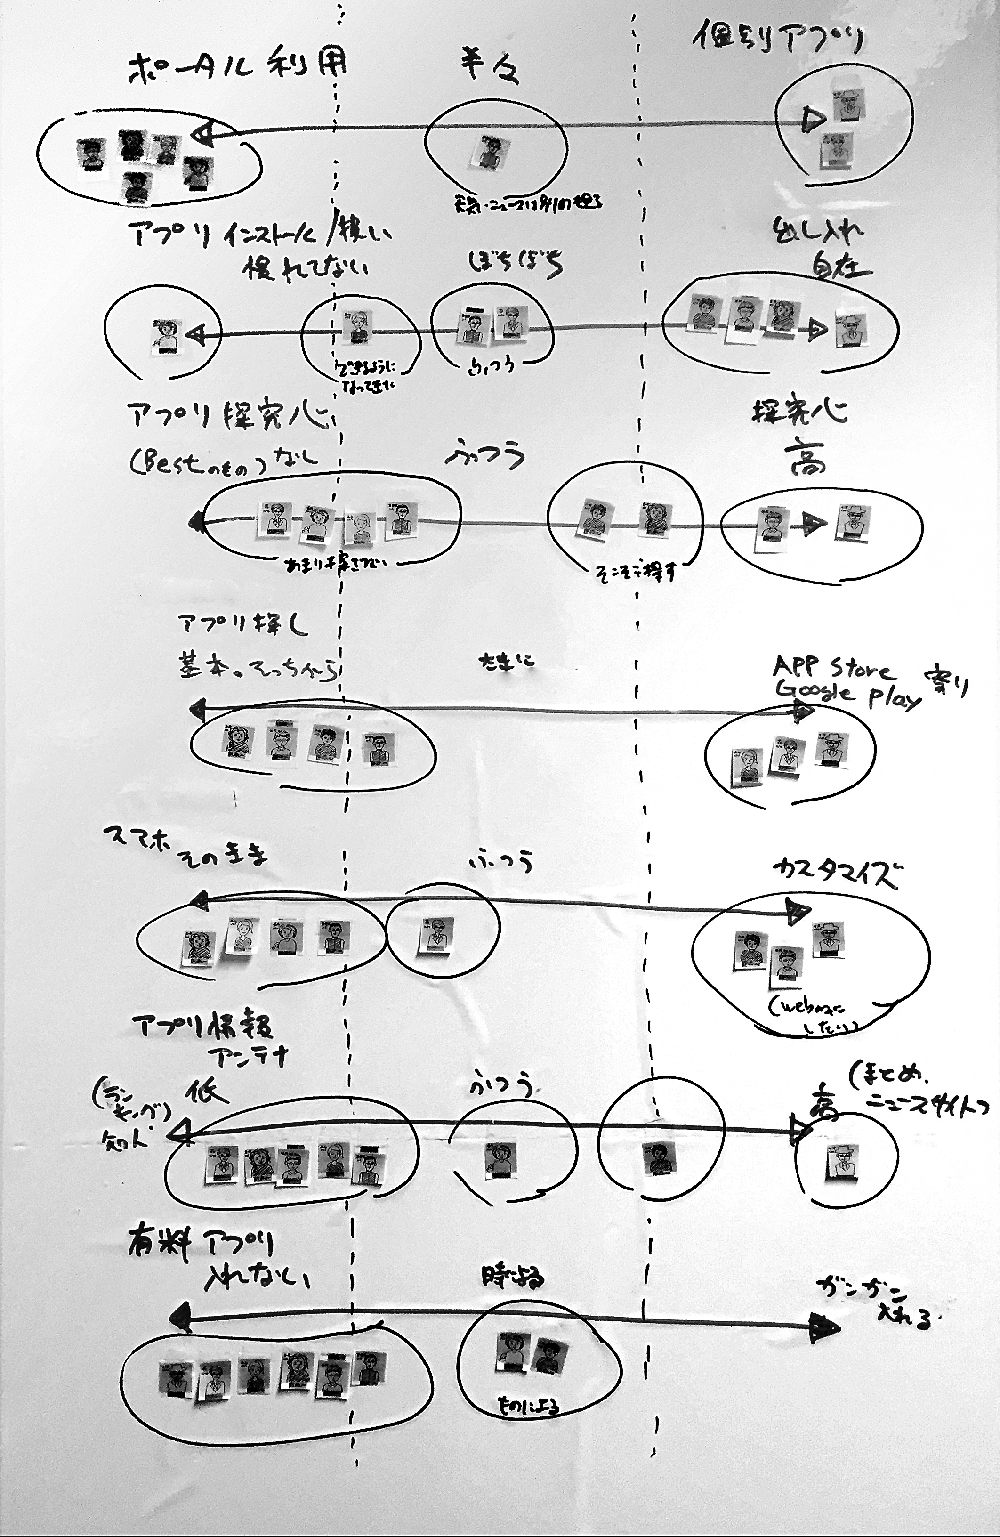 ポータル利用
半々
個別アプリ
アプリインストール/扱い
慣れてない
ぼちぼち
出し入れ
自在
できるように
なってきた
ふつう
アプリ探究心
(Bestのもの)なし
ふつう
探究心
高
あまり探さない
そこそこ探す
アプリ探し
基本。そっちから
たまに
APP Store
Google play 寄り
スマホ そのまま
ふつう
カスタマイズ
(webみたいに
したい)
アプリ情報
アンテナ
(ラン
キング)
知人
低
ふつう
高
(まとめ、
ニュースサイト)
有料アプリ
入れない
時による
ガンガン
入れる
ものによる